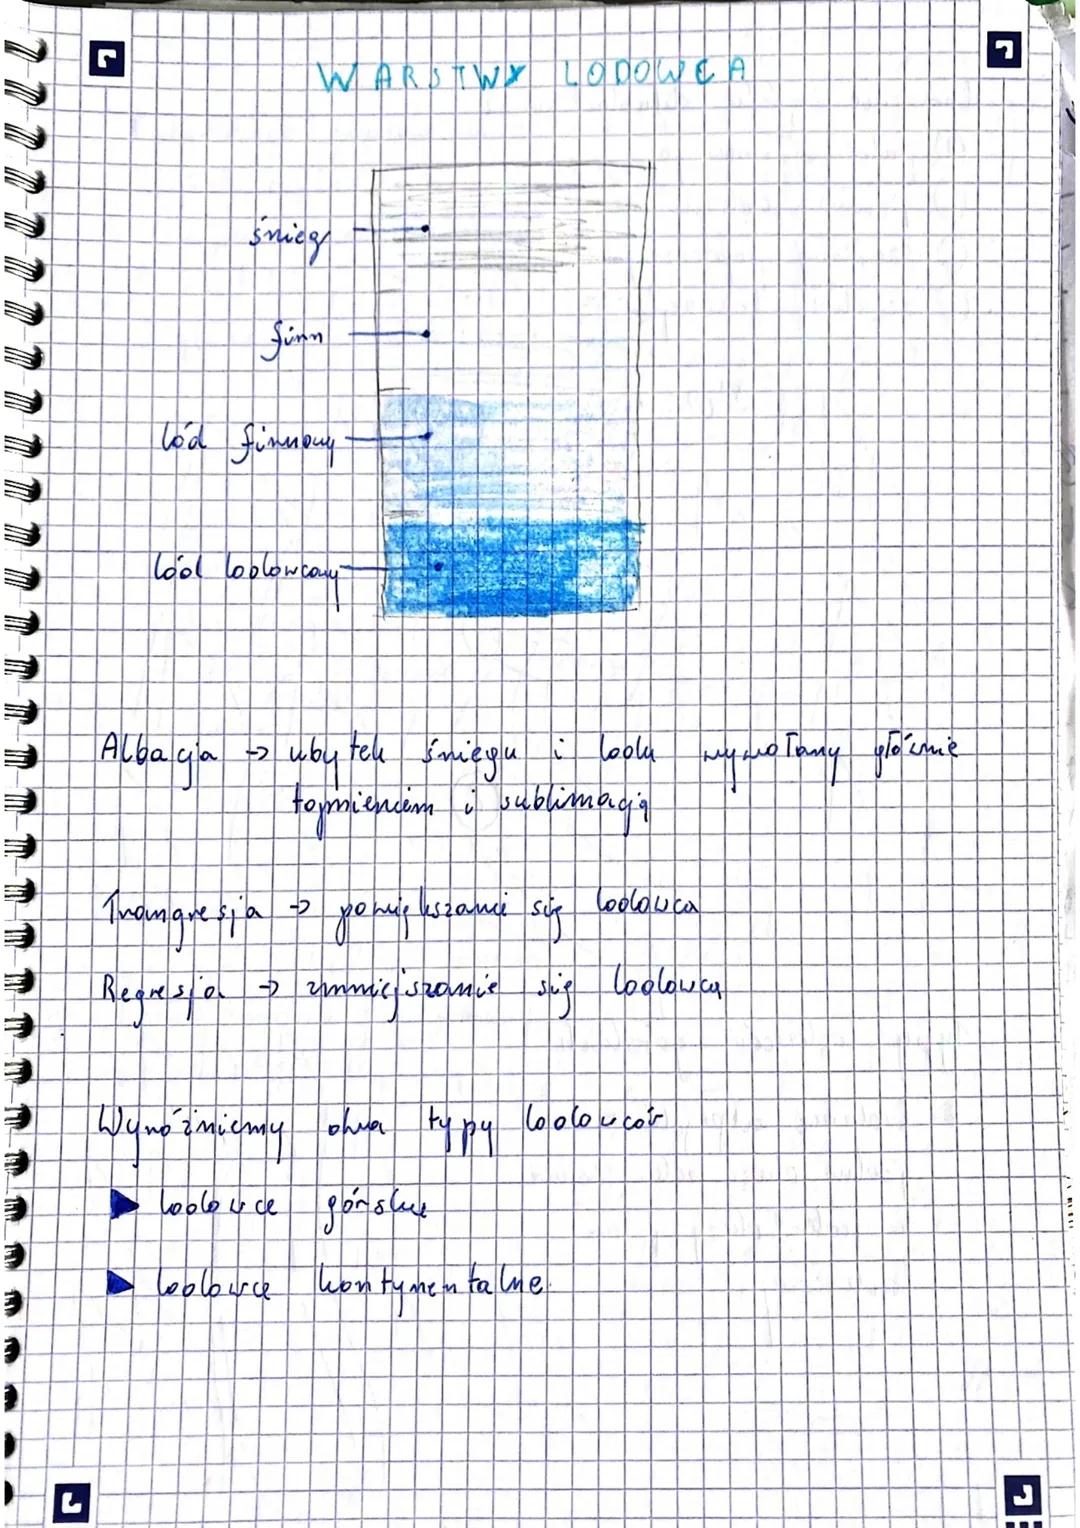 WARSTWY LODOWCA
śnieg
firn
lód firnowy
lód lodowcowy
Albacja → ubytek śniegu i lodu wywołany głównie
topnieniem i sublimacją
Transgresja → powiększanie się lodowca
Regresja → zmniejszanie się lodowca
Wyróżniamy dwa typy lodowców
lodowce górskie
lodowce kontynentalne